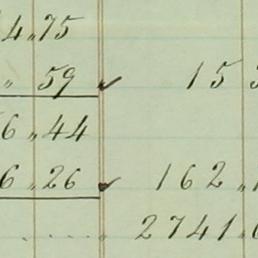 4 „ 75
„ 59 ✓ 15 3
6 „ 44
6 „ 26 ✓ 162 „
2741 „ 6